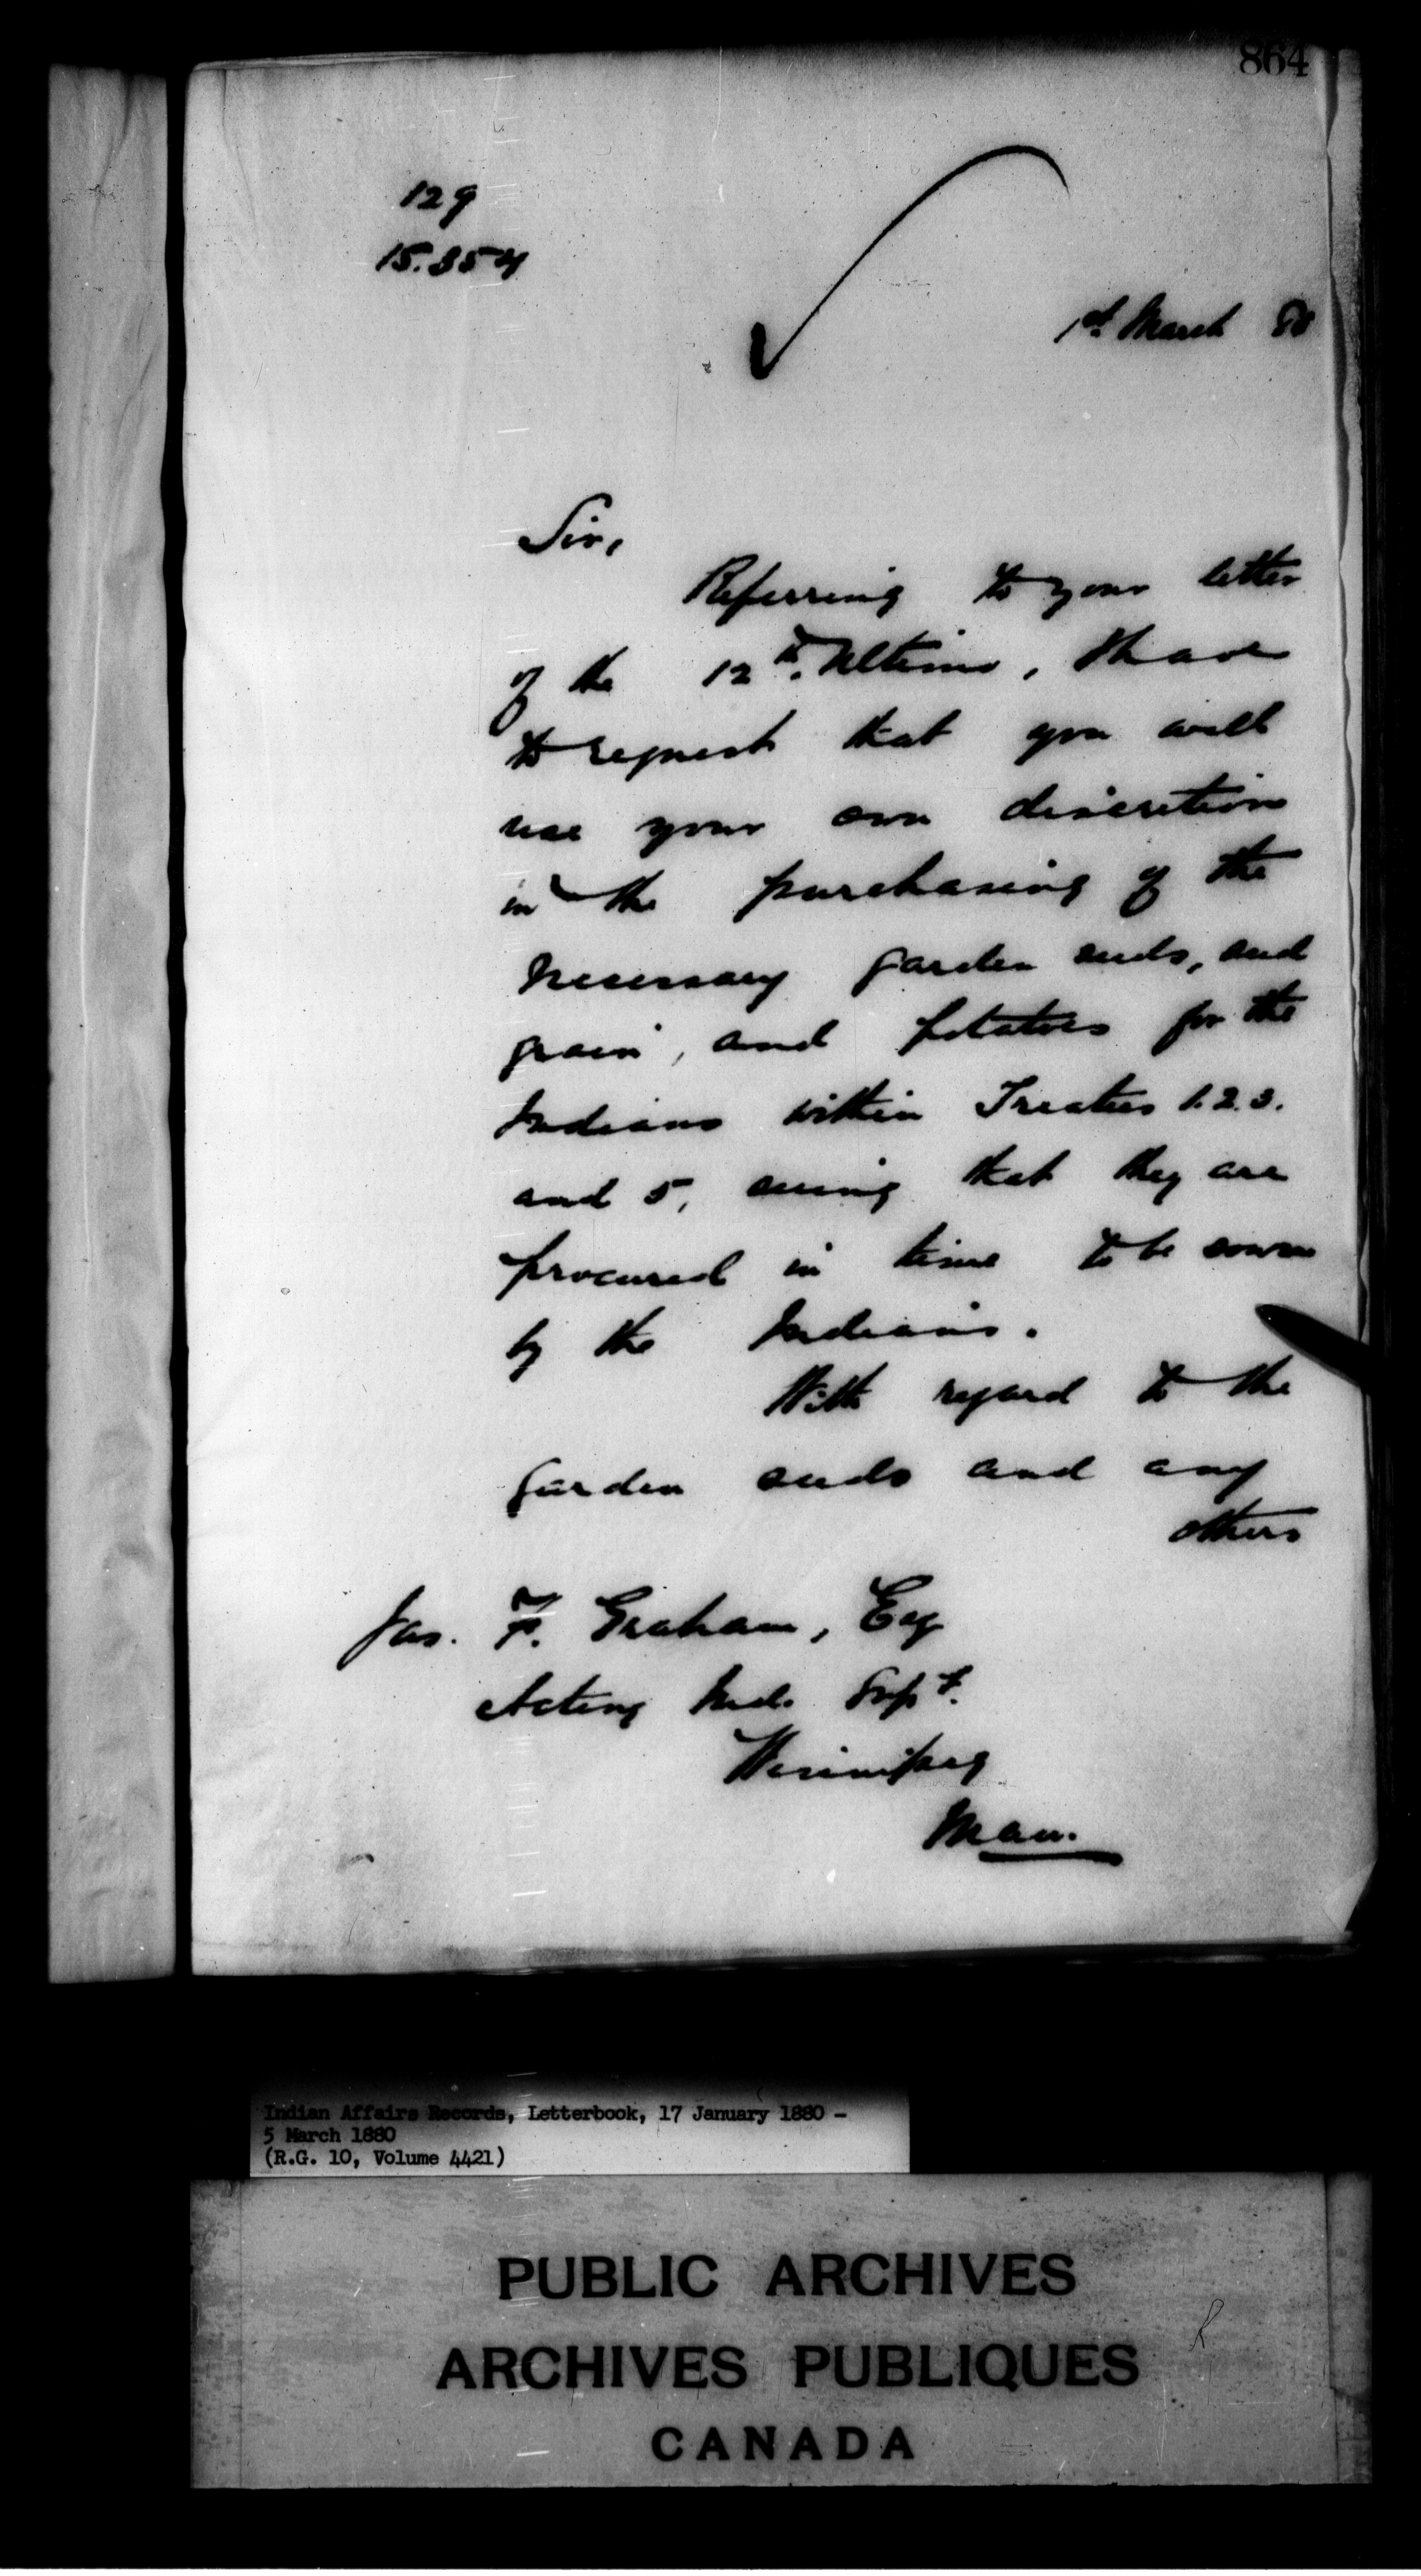 864
129
15.354
1st March 80
Sir,
Referring to your letter
of the 12th. Ultimo, I have
to request that you will
use your own discretion
in the purchasing of the
necessary garden seeds, and
grain, and potatoes for the
Indians within Treaties 1.2.3.
and 5, seeing that they are
procured in time to be sown
by the Indians.
With regard to the
garden seeds and any
others
Jas. F. Graham, Esq
Acting Ind. Supt.
Winnipeg
Man.
Indian Affairs Records, Letterbook, 17 January 1880 -
5 March 1880
(R.G. 10, Volume 4421)
PUBLIC ARCHIVES
ARCHIVES PUBLIQUES
CANADA